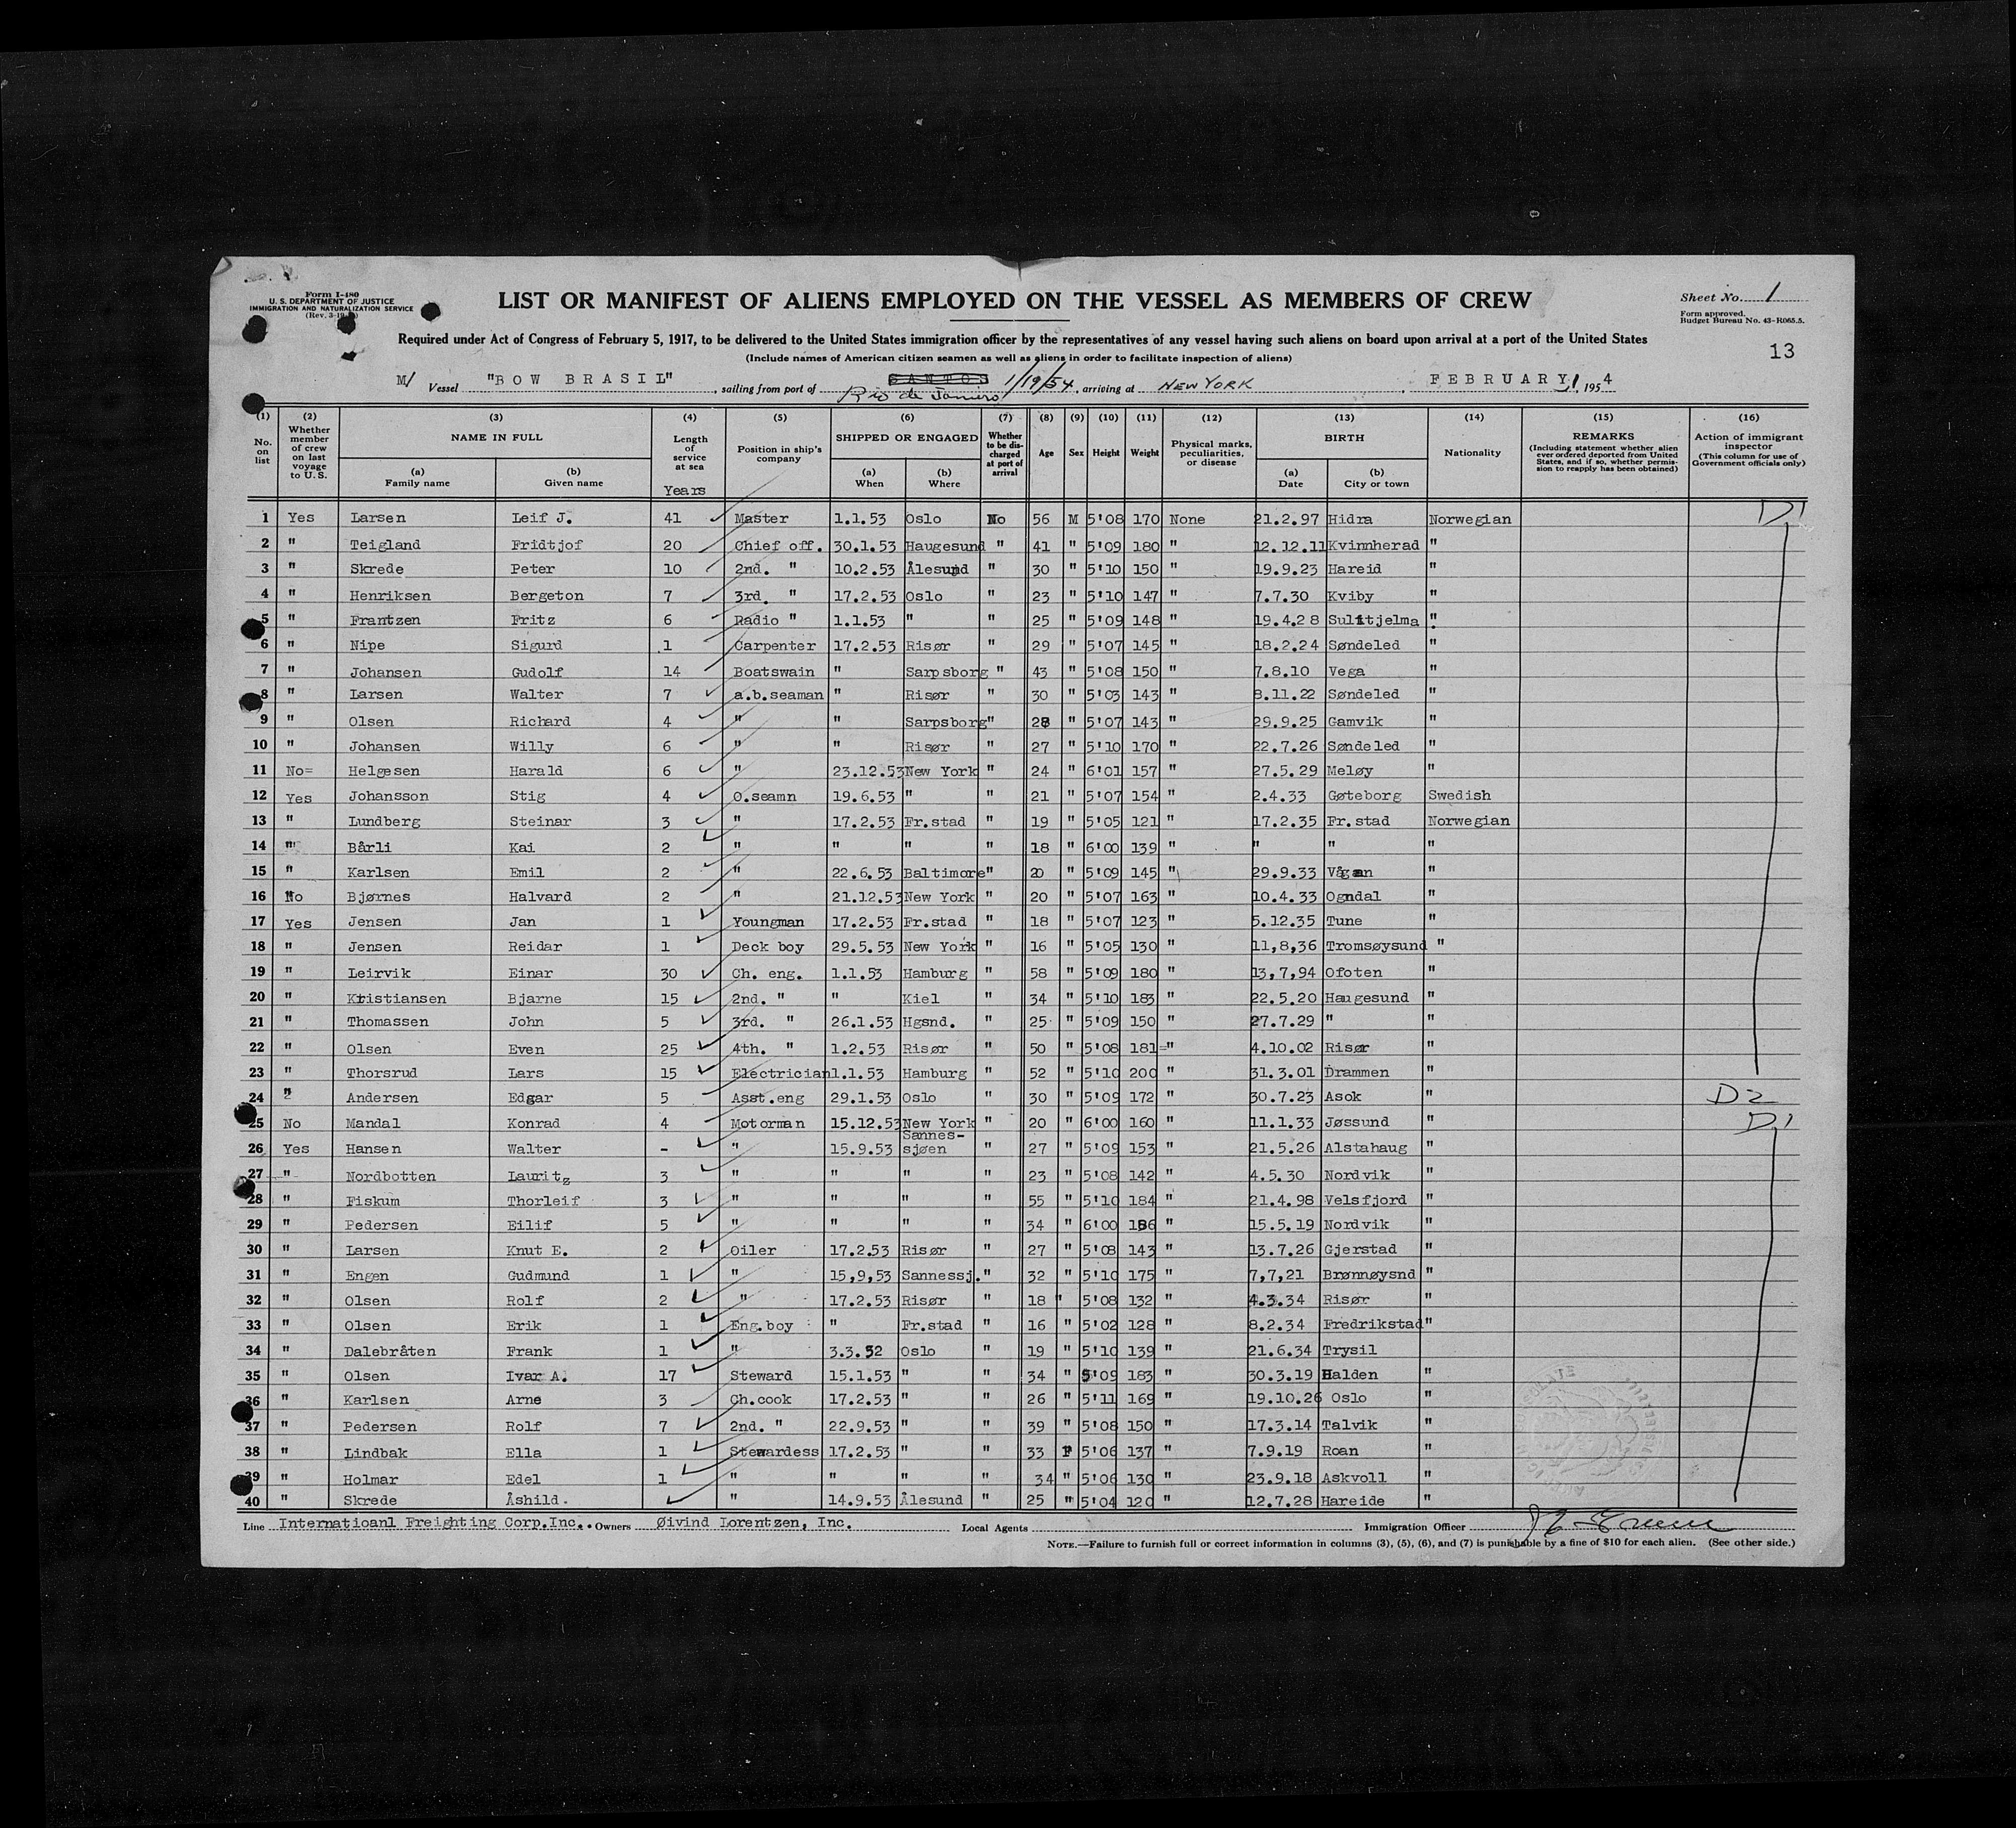 Form I-480
U. S. DEPARTMENT OF JUSTICE
IMMIGRATION AND NATURALIZATION SERVICE
LIST OR MANIFEST OF ALIENS EMPLOYED ON THE VESSEL AS MEMBERS OF CREW
Sheet No. 1
Form approved.
Budget Bureau No. 43-R065.5.
Required under Act of Congress of February 5, 1917, to be delivered to the United States immigration officer by the representatives of any vessel having such aliens on board upon arrival at a port of the United States
(Include names of American citizen seamen as well as aliens in order to facilitate inspection of aliens)
13
M/ Vessel "BOW BRASIL", sailing from port of SANTOS Rio de Janiero 1/19/54, arriving at NEW YORK, FEBRUARY 1, 1954
(1) (2) (3) (4) (5) (6) (7) (8) (9) (10) (11) (12) (13) (14) (15) (16)
No. on list
Whether member of crew on last voyage to U. S.
NAME IN FULL
(a) Family name
(b) Given name
Length of service at sea
Years
Position in ship's company
SHIPPED OR ENGAGED
(a) When
(b) Where
Whether to be discharged at port of arrival
Age
Sex
Height
Weight
Physical marks, peculiarities, or disease
BIRTH
(a) Date
(b) City or town
Nationality
REMARKS
(Including statement whether alien ever ordered deported from United States, and if so, whether permission to reapply has been obtained)
Action of immigrant inspector
(This column for use of Government officials only)
1 Yes Larsen Leif J. 41 Master 1.1.53 Oslo No 56 M 5'08 170 None 21.2.97 Hidra Norwegian D1
2 " Teigland Fridtjof 20 Chief off. 30.1.53 Haugesund " 41 " 5'09 180 " 12.12.11 Kvinnherad "
3 " Skrede Peter 10 2nd. " 10.2.53 Ålesund " 30 " 5'10 150 " 19.9.23 Hareid "
4 " Henriksen Bergeton 7 3rd. " 17.2.53 Oslo " 23 " 5'10 147 " 7.7.30 Kviby "
5 " Frantzen Fritz 6 Radio " 1.1.53 " " 25 " 5'09 148 " 19.4.28 Sulitjelma "
6 " Nipe Sigurd 1 Carpenter 17.2.53 Risør " 29 " 5'07 145 " 18.2.24 Søndeled "
7 " Johansen Gudolf 14 Boatswain " Sarpsborg " 43 " 5'08 150 " 7.8.10 Vega "
8 " Larsen Walter 7 a.b.seaman " Risør " 30 " 5'03 143 " 8.11.22 Søndeled "
9 " Olsen Richard 4 " " Sarpsborg " 28 " 5'07 143 " 29.9.25 Gamvik "
10 " Johansen Willy 6 " " Risør " 27 " 5'10 170 " 22.7.26 Søndeled "
11 No= Helgesen Harald 6 " 23.12.53 New York " 24 " 6'01 157 " 27.5.29 Meløy "
12 Yes Johansson Stig 4 O.seamn 19.6.53 " " 21 " 5'07 154 " 2.4.33 Gøteborg Swedish
13 " Lundberg Steinar 3 " 17.2.53 Fr.stad " 19 " 5'05 121 " 17.2.35 Fr.stad Norwegian
14 " Bårli Kai 2 " " " " 18 " 6'00 139 " " " "
15 " Karlsen Emil 2 " 22.6.53 Baltimore " 20 " 5'09 145 " 29.9.33 Vågan "
16 No Bjørnes Halvard 2 " 21.12.53 New York " 20 " 5'07 163 " 10.4.33 Ogndal "
17 Yes Jensen Jan 1 Youngman 17.2.53 Fr.stad " 18 " 5'07 123 " 5.12.35 Tune "
18 " Jensen Reidar 1 Deck boy 29.5.53 New York " 16 " 5'05 130 " 11,8,36 Tromsøysund "
19 " Leirvik Einar 30 Ch. eng. 1.1.53 Hamburg " 58 " 5'09 180 " 13,7,94 Ofoten "
20 " Kristiansen Bjarne 15 2nd. " " Kiel " 34 " 5'10 183 " 22.5.20 Haugesund "
21 " Thomassen John 5 3rd. " 26.1.53 Hgsnd. " 25 " 5'09 150 " 27.7.29 " "
22 " Olsen Even 25 4th. " 1.2.53 Risør " 50 " 5'08 181= " 4.10.02 Risør "
23 " Thorsrud Lars 15 Electrician 1.1.53 Hamburg " 52 " 5'10 200 " 31.3.01 Drammen "
24 " Andersen Edgar 5 Asst.eng 29.1.53 Oslo " 30 " 5'09 172 " 30.7.23 Asok " D2
25 No Mandal Konrad 4 Motorman 15.12.53 New York " 20 " 6'00 160 " 11.1.33 Jøssund " D1
26 Yes Hansen Walter - " 15.9.53 Sannes-sjøen " 27 " 5'09 153 " 21.5.26 Alstahaug "
27 " Nordbotten Lauritz 3 " " " " 23 " 5'08 142 " 4.5.30 Nordvik "
28 " Fiskum Thorleif 3 " " " " 55 " 5'10 184 " 21.4.98 Velsfjord "
29 " Pedersen Eilif 5 " " " " 34 " 6'00 186 " 15.5.19 Nordvik "
30 " Larsen Knut E. 2 Oiler 17.2.53 Risør " 27 " 5'08 143 " 13.7.26 Gjerstad "
31 " Engen Gudmund 1 " 15,9,53 Sannessj. " 32 " 5'10 175 " 7,7,21 Brønnøysnd "
32 " Olsen Rolf 2 " 17.2.53 Risør " 18 " 5'08 132 " 4.3.34 Risør "
33 " Olsen Erik 1 Eng.boy " Fr.stad " 16 " 5'02 128 " 8.2.34 Fredrikstad "
34 " Dalebråten Frank 1 " 3.3.52 Oslo " 19 " 5'10 139 " 21.6.34 Trysil
35 " Olsen Ivar A. 17 Steward 15.1.53 " " 34 " 5'09 183 " 30.3.19 Halden "
36 " Karlsen Arne 3 Ch.cook 17.2.53 " " 26 " 5'11 169 " 19.10.26 Oslo "
37 " Pedersen Rolf 7 2nd. " 22.9.53 " " 39 " 5'08 150 " 17.3.14 Talvik "
38 " Lindbak Ella 1 Stewardess 17.2.53 " " 33 F 5'06 137 " 7.9.19 Roan "
39 " Holmar Edel 1 " " " " 34 " 5'06 130 " 23.9.18 Askvoll "
40 " Skrede Åshild. " 14.9.53 Ålesund " 25 " 5'04 120 " 12.7.28 Hareide "
Line Internatioanl Freighting Corp.Inc. Owners Øivind Lorentzen, Inc. Local Agents Immigration Officer
NOTE.—Failure to furnish full or correct information in columns (3), (5), (6), and (7) is punishable by a fine of $10 for each alien. (See other side.)